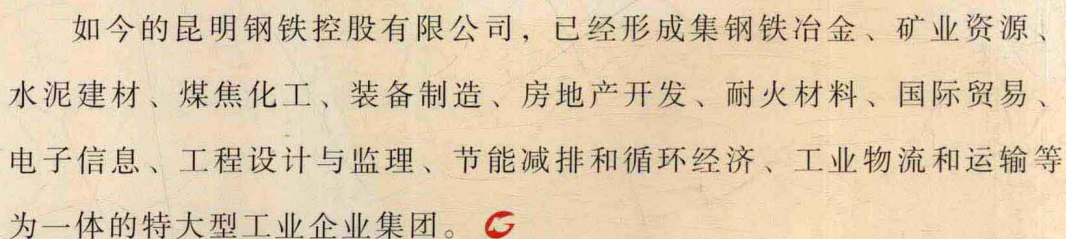 如今的昆明钢铁控股有限公司，已经形成集钢铁冶金、矿业资源、
水泥建材、煤焦化工、装备制造、房地产开发、耐火材料、国际贸易、
电子信息、工程设计与监理、节能减排和循环经济、工业物流和运输等
为一体的特大型工业企业集团。